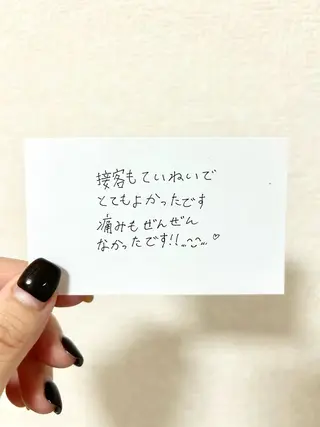 接客もていねいで
とてもよかったです
痛みもぜんぜん
なかったです!! ♡